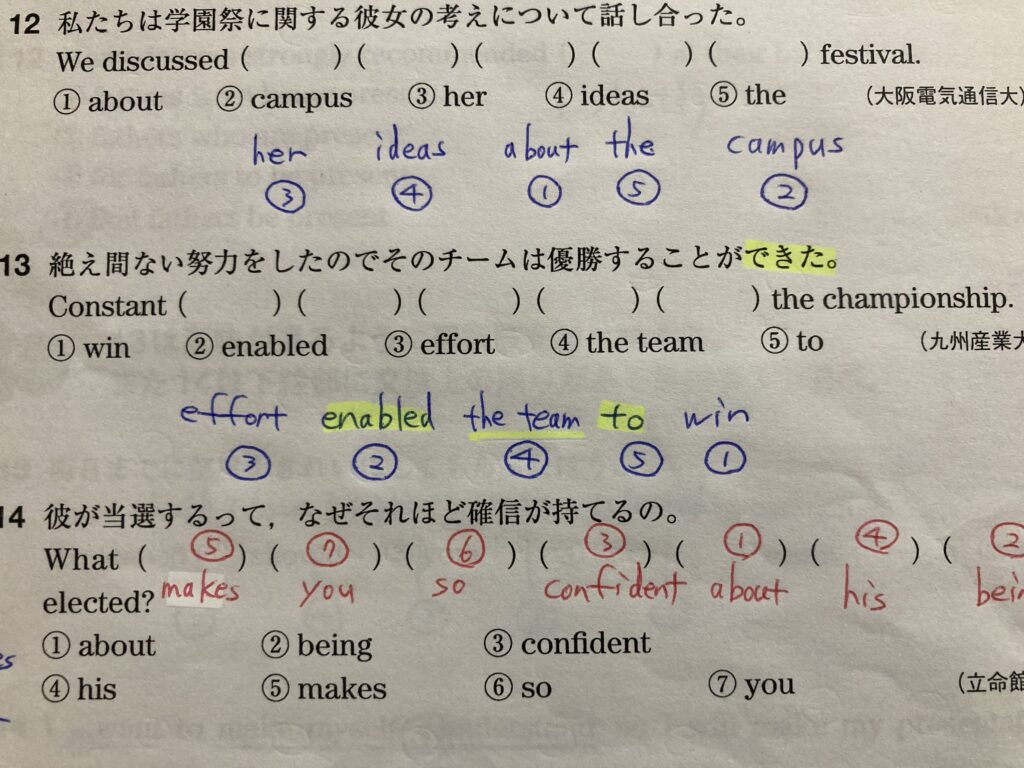 12 私たちは学園祭に関する彼女の考えについて話し合った。
We discussed ( ) ( ) ( ) ( ) ( ) festival.
① about ② campus ③ her ④ ideas ⑤ the (大阪電気通信大)
her ideas about the campus
③ ④ ① ⑤ ②
13 絶え間ない努力をしたのでそのチームは優勝することができた。
Constant ( ) ( ) ( ) ( ) ( ) the championship.
① win ② enabled ③ effort ④ the team ⑤ to (九州産業大
effort enabled the team to win
③ ② ④ ⑤ ①
14 彼が当選するって，なぜそれほど確信が持てるの。
What ( ⑤ ) ( ⑦ ) ( ⑥ ) ( ③ ) ( ① ) ( ④ ) ( ②
makes you so confident about his bein
elected?
① about ② being ③ confident
④ his ⑤ makes ⑥ so ⑦ you (立命館